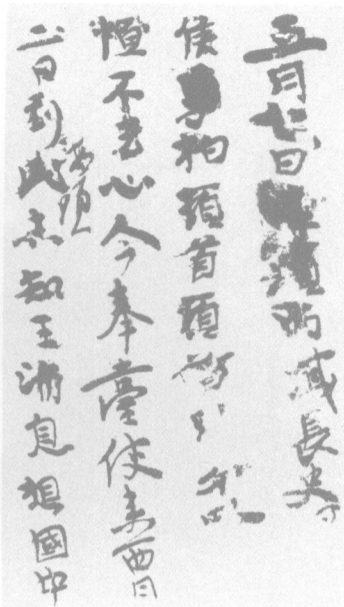 五月七日西域長史
侯李柏頓首頓首
恒不去心今奉臺使來西月
二日到此未知王消息想國中
海頭